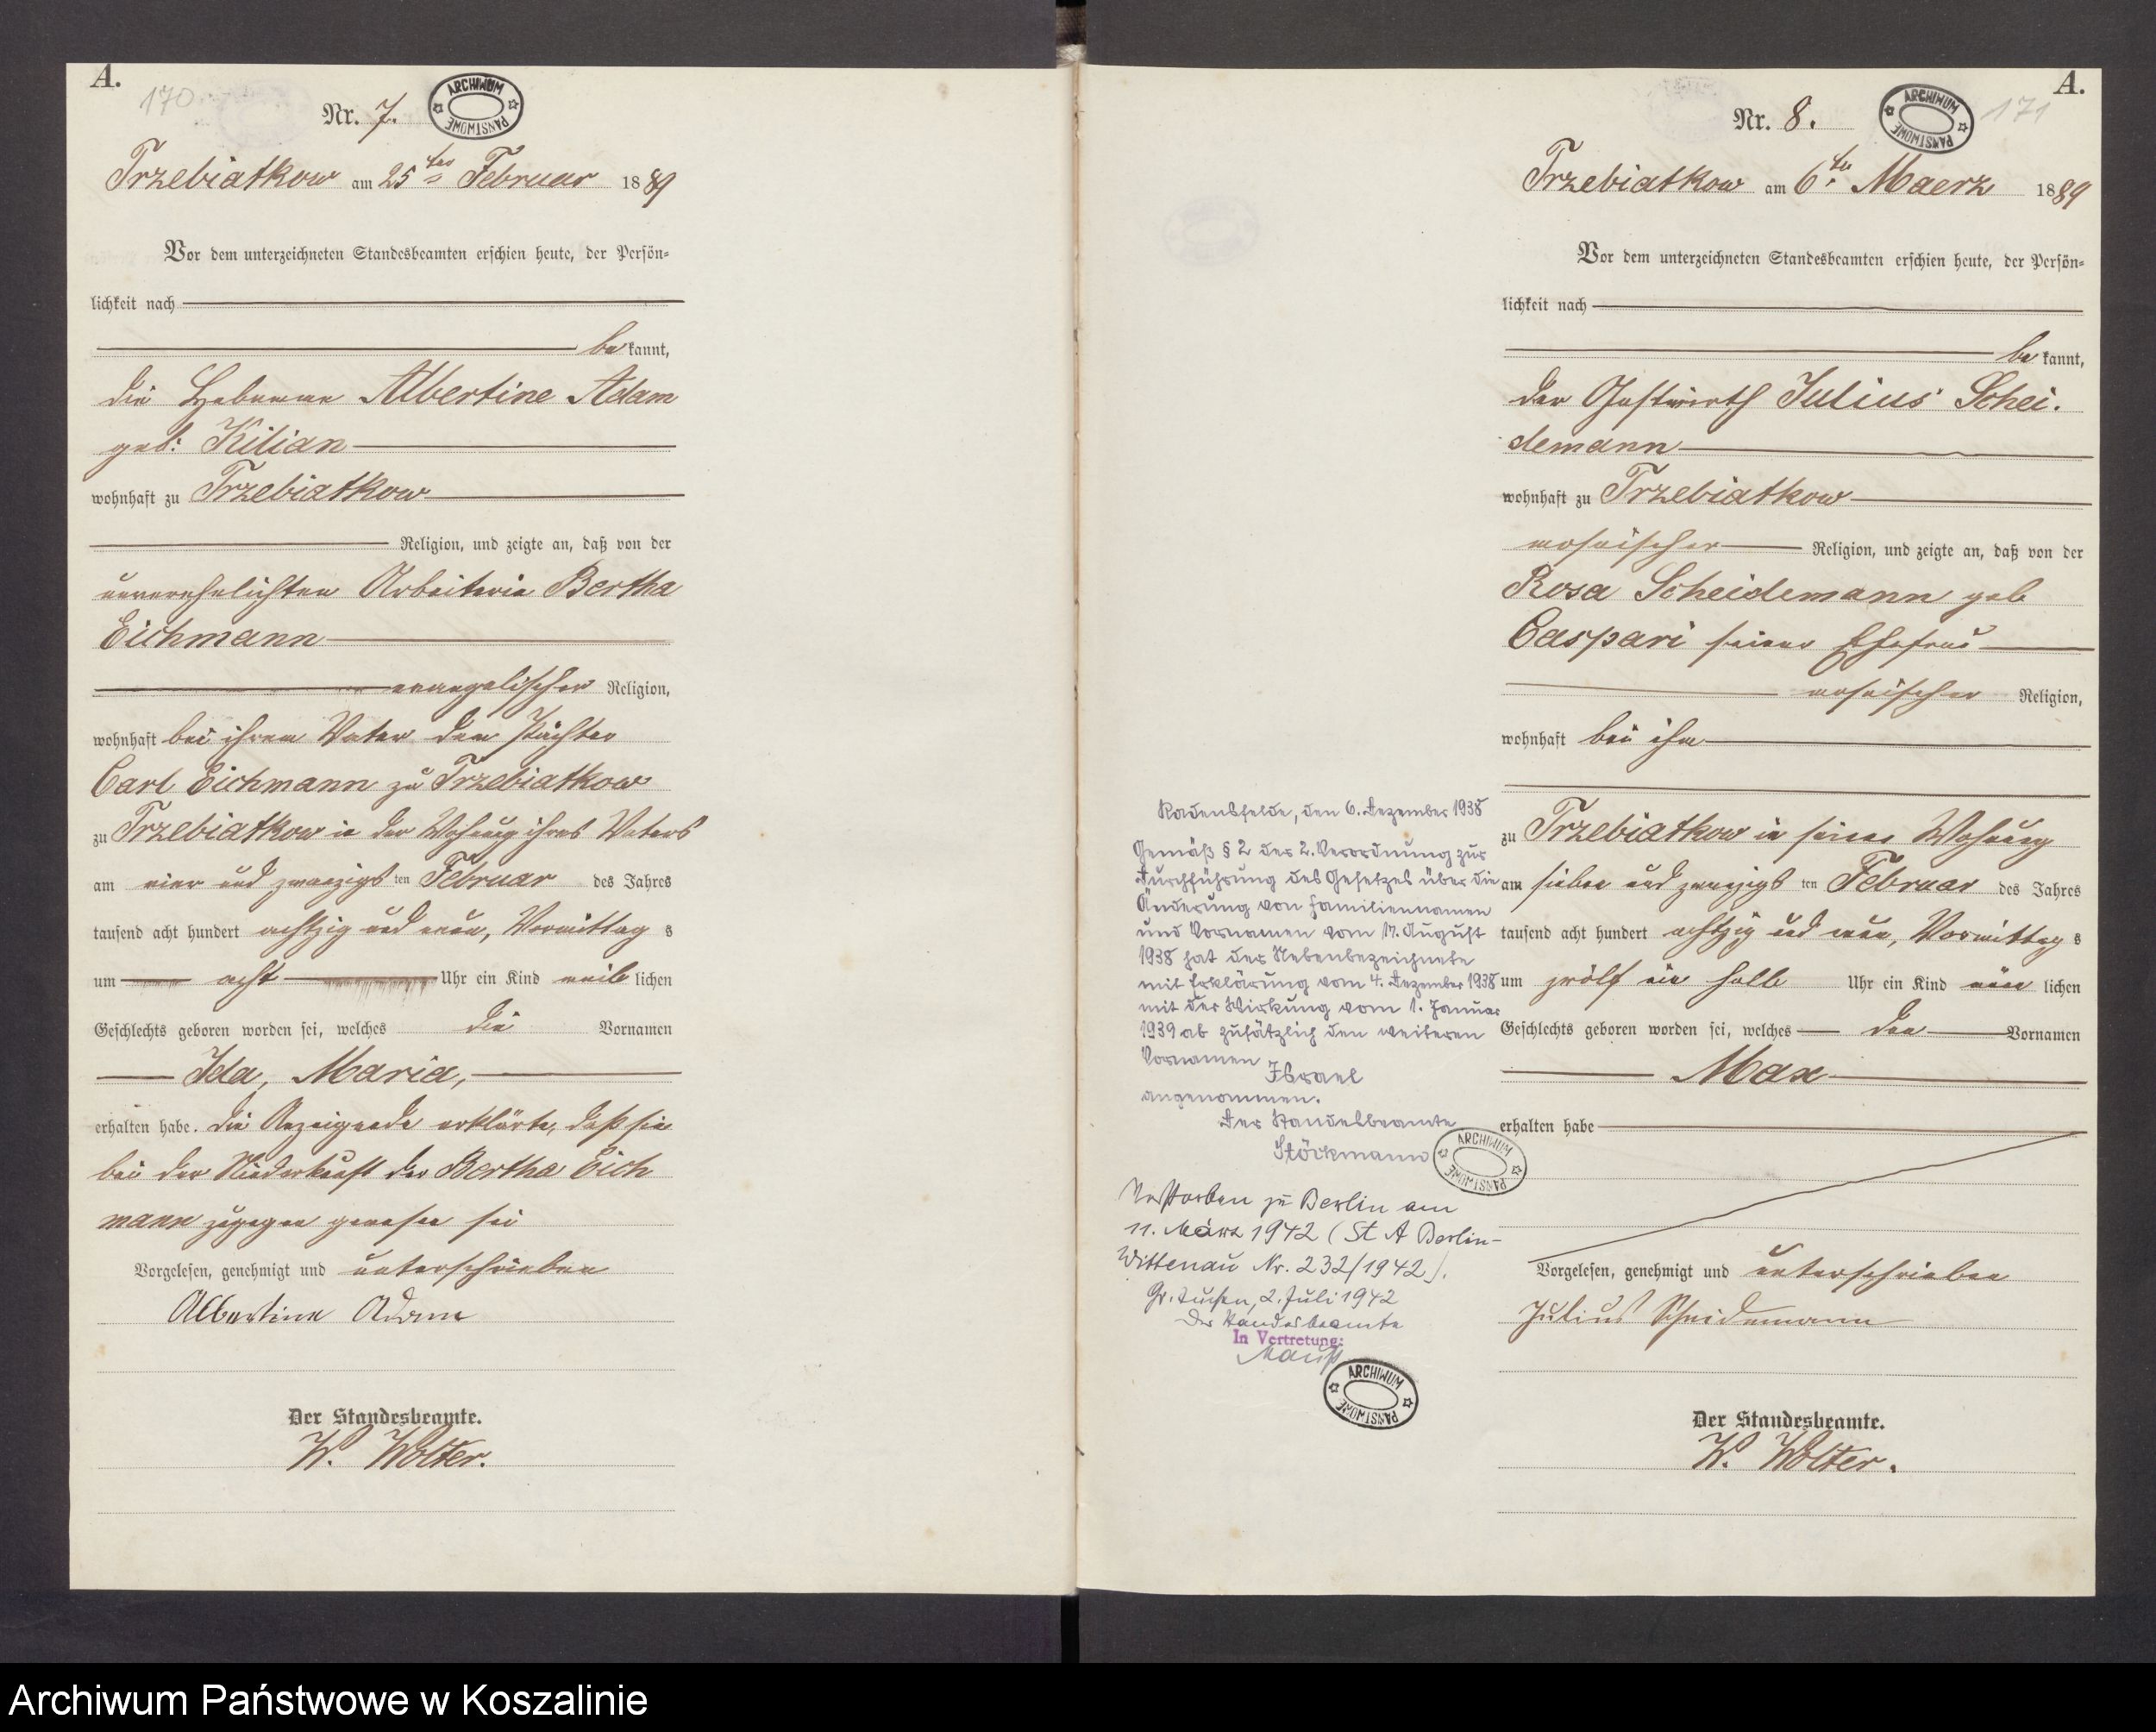 A.
170
Nr. 7.
ARCHIWUM PAŃSTWOWE
Trzebiatkow am 25ten Februar 1889
Vor dem unterzeichneten Standesbeamten erschien heute, der Persön-
lichkeit nach
bekannt,
die Hebamme Albertine Adam
geb. Kilian
wohnhaft zu Trzebiatkow
Religion, und zeigte an, daß von der
unverehelichten Arbeiterin Bertha
Eichmann
evangelischer Religion,
wohnhaft bei ihrem Vater dem Pächter
Carl Eichmann zu Trzebiatkow
zu Trzebiatkow in der Wohnung ihres Vaters
am vier und zwanzigs ten Februar des Jahres
tausend acht hundert achtzig und neun, Vormittag s
um acht Uhr ein Kind weib lichen
Geschlechts geboren worden sei, welches die Vornamen
Ida, Maria,
erhalten habe. Die Anzeigende erklärte, daß sie
bei der Niederkunft der Bertha Eich
mann zugegen gewesen sei
Vorgelesen, genehmigt und unterschrieben
Albertine Adam
Der Standesbeamte.
W. Wolter.
A.
171
Nr. 8.
ARCHIWUM PAŃSTWOWE
Trzebiatkow am 6ten Maerz 1889
Vor dem unterzeichneten Standesbeamten erschien heute, der Persön-
lichkeit nach
bekannt,
der Gastwirth Julius Schei-
demann
wohnhaft zu Trzebiatkow
mosaischer Religion, und zeigte an, daß von der
Rosa Scheidemann geb
Caspari seiner Ehefrau
mosaischer Religion,
wohnhaft bei ihm
zu Trzebiatkow in seiner Wohnung
am sieben und zwanzigs ten Februar des Jahres
tausend acht hundert achtzig und neun, Vormittag s
um zwölf ein halb Uhr ein Kind män lichen
Geschlechts geboren worden sei, welches den Vornamen
Max
erhalten habe
Vorgelesen, genehmigt und unterschrieben
Julius Scheidemann
Der Standesbeamte.
W. Wolter.
Radensfelde, den 6. Dezember 1938
Gemäß § 2 der 2. Verordnung zur
Durchführung des Gesetzes über die
Änderung von Familiennamen
und Vornamen vom 17. August
1938 hat der Nebenbezeichnete
mit Erklärung vom 4. Dezember 1938
mit der Wirkung vom 1. Januar
1939 ab zusätzlich den weiteren
Vornamen
Israel
angenommen.
Der Standesbeamte
Stöckmann
ARCHIWUM PAŃSTWOWE
Verstorben zu Berlin am
11. März 1942 (St A Berlin-
Wittenau Nr. 232/1942).
Gr. Tuchen, 2. Juli 1942
Der Standesbeamte
In Vertretung:
ARCHIWUM PAŃSTWOWE
Archiwum Państwowe w Koszalinie